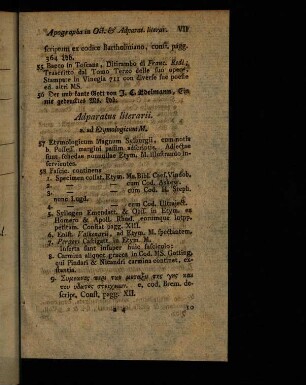 Apographa in Oct. & Adparat. literar. VII
scriptum ex codice Bartholiniano, const. pagg.
264 Ldb.
55 Bacco in Toscana, Ditirambo di Franc. Redi,
Trascritto dal Tomo Terzo delle sue opere
Stampate in Venegia 711 con diverse sue poesie
ed. altri MS.
56 Der und kante Gott von J. C. Edelmann, Ein
nie gedrucktes Ms. Ldb.
Adparatus literarii.
a. ad Etymologicum M.
57 Etymologicum Magnum Sylburgii, cum notis
b. Possess. margini passim adscriptis. Adjectae
sunt schedae nonnullae Etym. M. illustrationi
inservientes.
58 Fascic. continens
1. Specimen collat. Etym. Ms. Bibl. Caes. Vindob.
2. — — cum Cod. Askew.
3. — — cum Cod. H. Steph.
nunc Lugd.
4. — — cum Cod. Ultraject.
5. Syllogen Emendatt. & Obss. in Etym. ex
Homero & Apoll. Rhod. eorumque interp-
petibus. Constat pagg. XIII.
6. Epist. Valkenarii, ad Etym. M. spectantem.
7. Pergeri Castigatt. in Etym. M.
Inserta sunt insuper huic fasciculo:
8. Carmina aliquot graeca in Cod. MS. Gotting.
qui Pindari & Nicandri carmina continet, ex-
stantia.
9. περι των μεταξυ της γης και
του ουρανου στοιχειων. e. cod. Brem. de-
script. Const. pagg. XII.